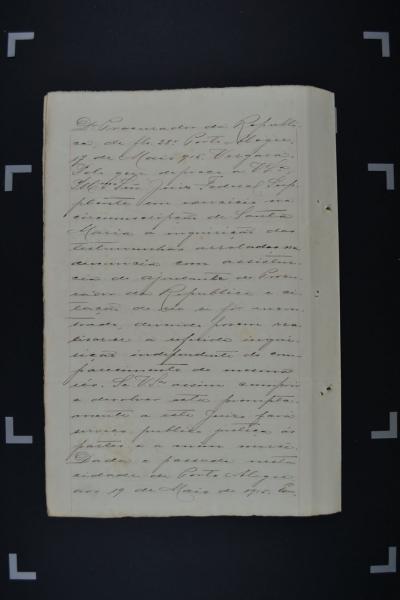 Dr Procurador da Republi-
ca, de fls. 28. Porto Alegre,
17 de Maio 915. Vergara.
Pelo que depreco a V. Sa.
Juiz Federal Sup-
plente em exercicio na
circumscripção de Santa
Maria a inquirição das
testemunhas arroladas na
denuncia com assisten-
cia do ajudante do Procu-
rador da Republica e ci-
tação do réo se fôr encon-
trado, devendo porem rea-
lisar-se a referida inqui-
rição independente do com-
parecimento do mesmo
réo. Se V. Sa. assim cumprir
e devolver esta prompta-
mente a este Juizo fará
serviço publico, justiça ás
partes e a mim mercê.
Dada e passada nesta
cidade de Porto Alegre
aos 19 de Maio de 1915. Eu,